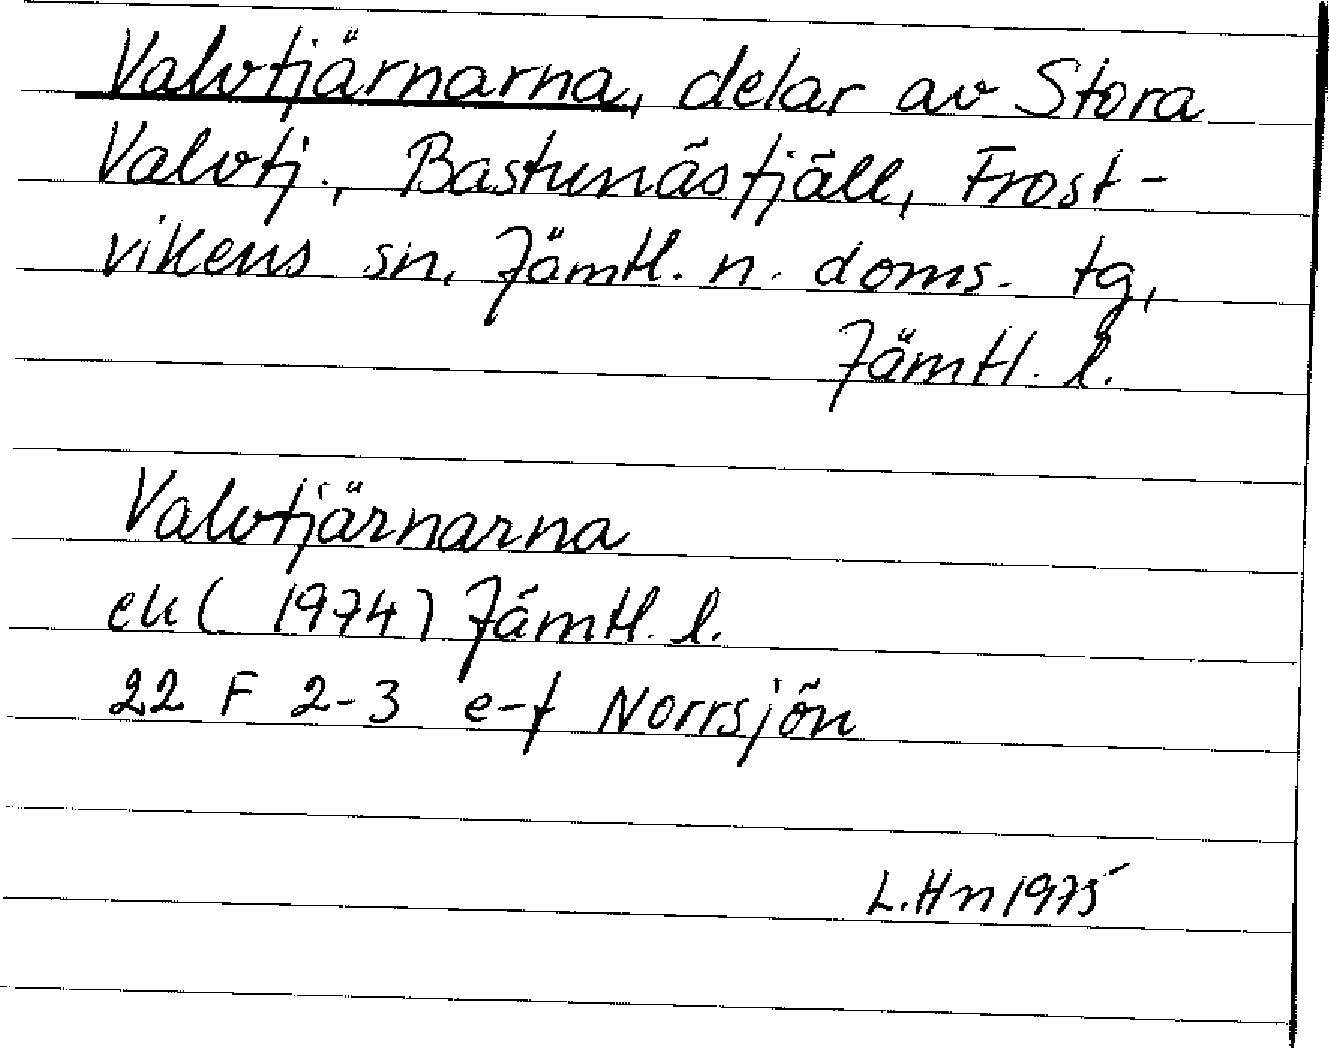 Valvtjärnarna, delar av Stora
Valvtj., Bastunäsfjäll, Frost-
vikens sn, Jämtl. n. doms. tg,
Jämtl. l.
Valvtjärnarna
ek (1974) Jämtl. l.
22 F 2-3 e-f Norrsjön
L. Hn 1975